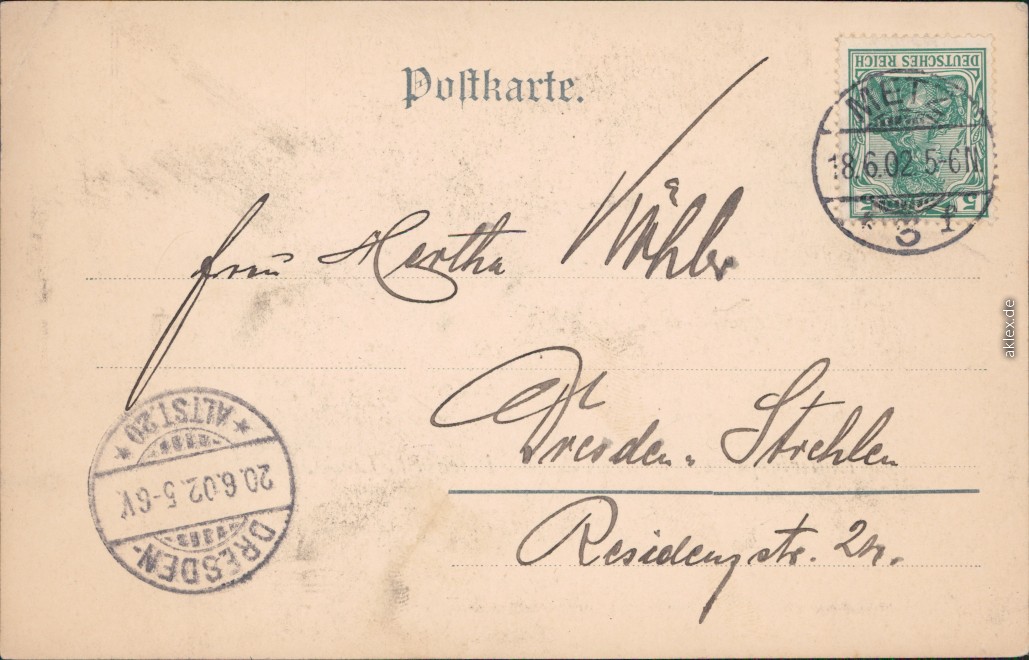 Postkarte.
DEUTSCHES REICH
5
METZ
18.6.02 5-6N
* 3 f
Frau Hertha Köhler
Dresden-Strehlen
Residenzstr.
ALTST.20
20.6.02. 5-6V.
DRESDEN-
aklex.de